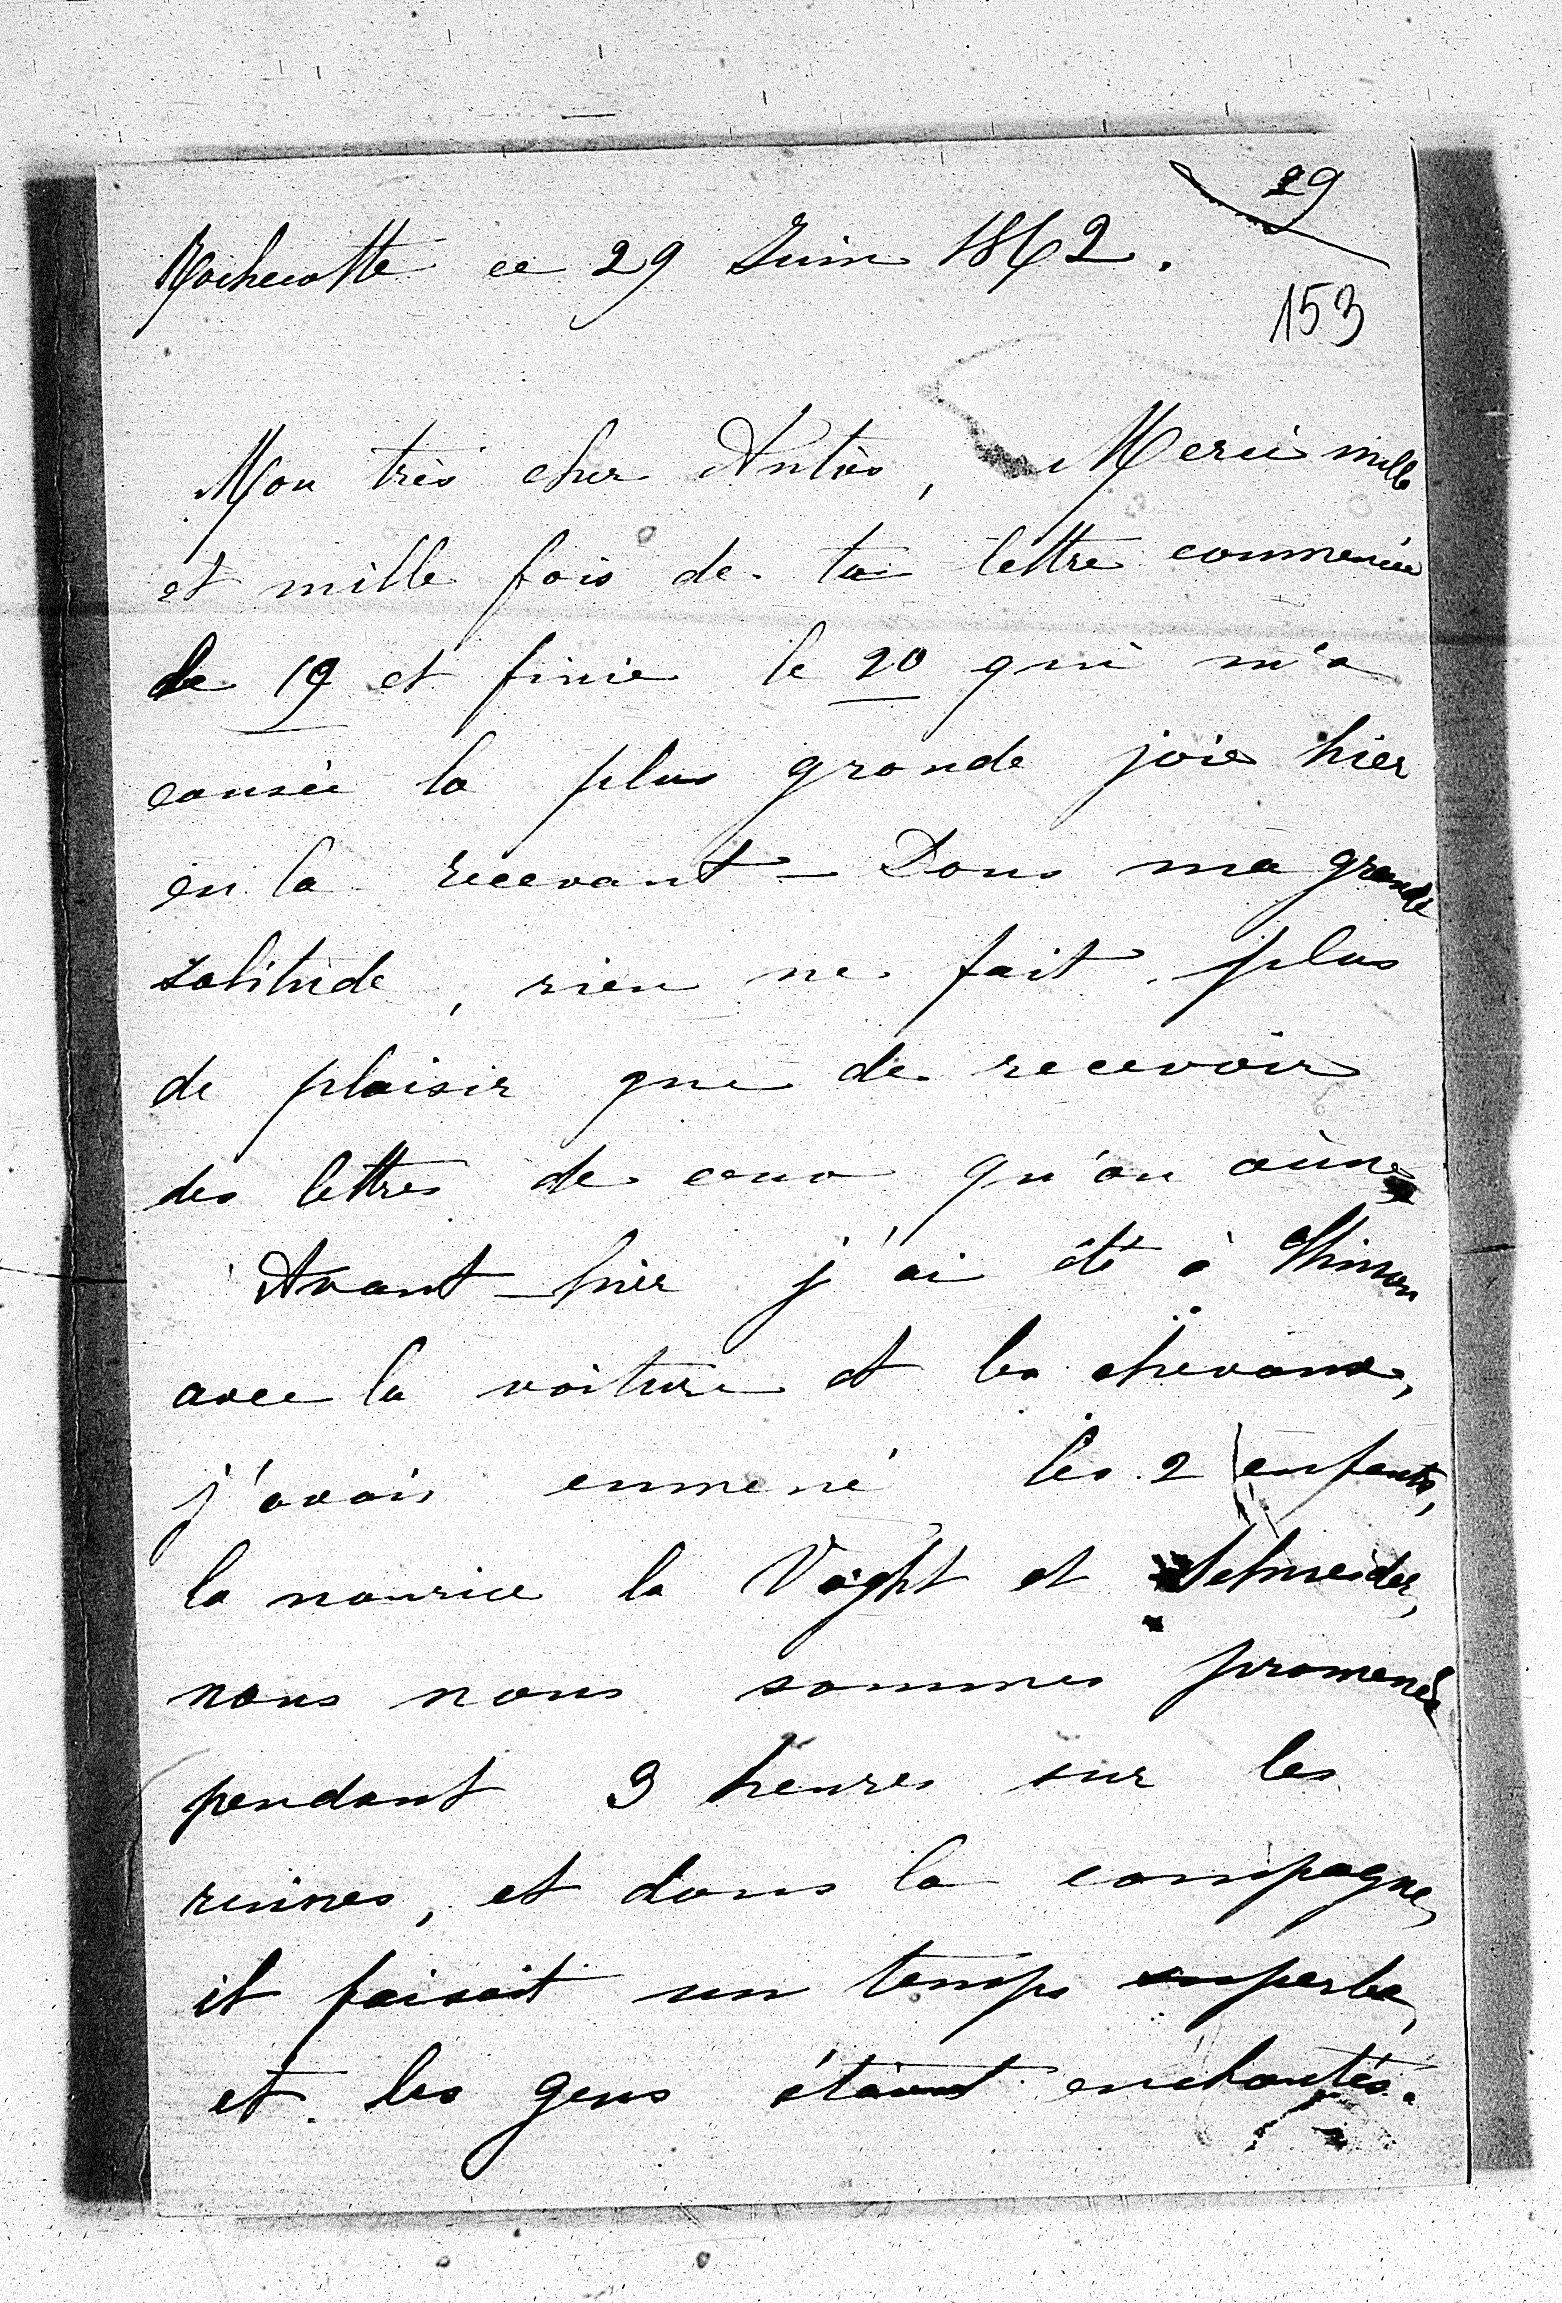 29
Rochecotte ce 29 Juin 1862.
153
Mon très cher Antos, Merci mille
et mille fois de ta lettre commencée
le 19 et finie le 20 qui m'a
causée la plus grande joie hier
en la recevant — Dans ma grande
solitude, rien ne fait plus
de plaisir que de recevoir
des lettres de ceux qu'on aime
Avant-hier j'ai été à Chinon
avec la voiture et les chevaux,
j'avais emmené les 2 enfants,
la nourice la Voght et Schneider,
nous nous sommes promenés
pendant 3 heures sur les
ruines, et dans la campagne,
il faisait un temps superbe,
et les gens étaient enchantés.